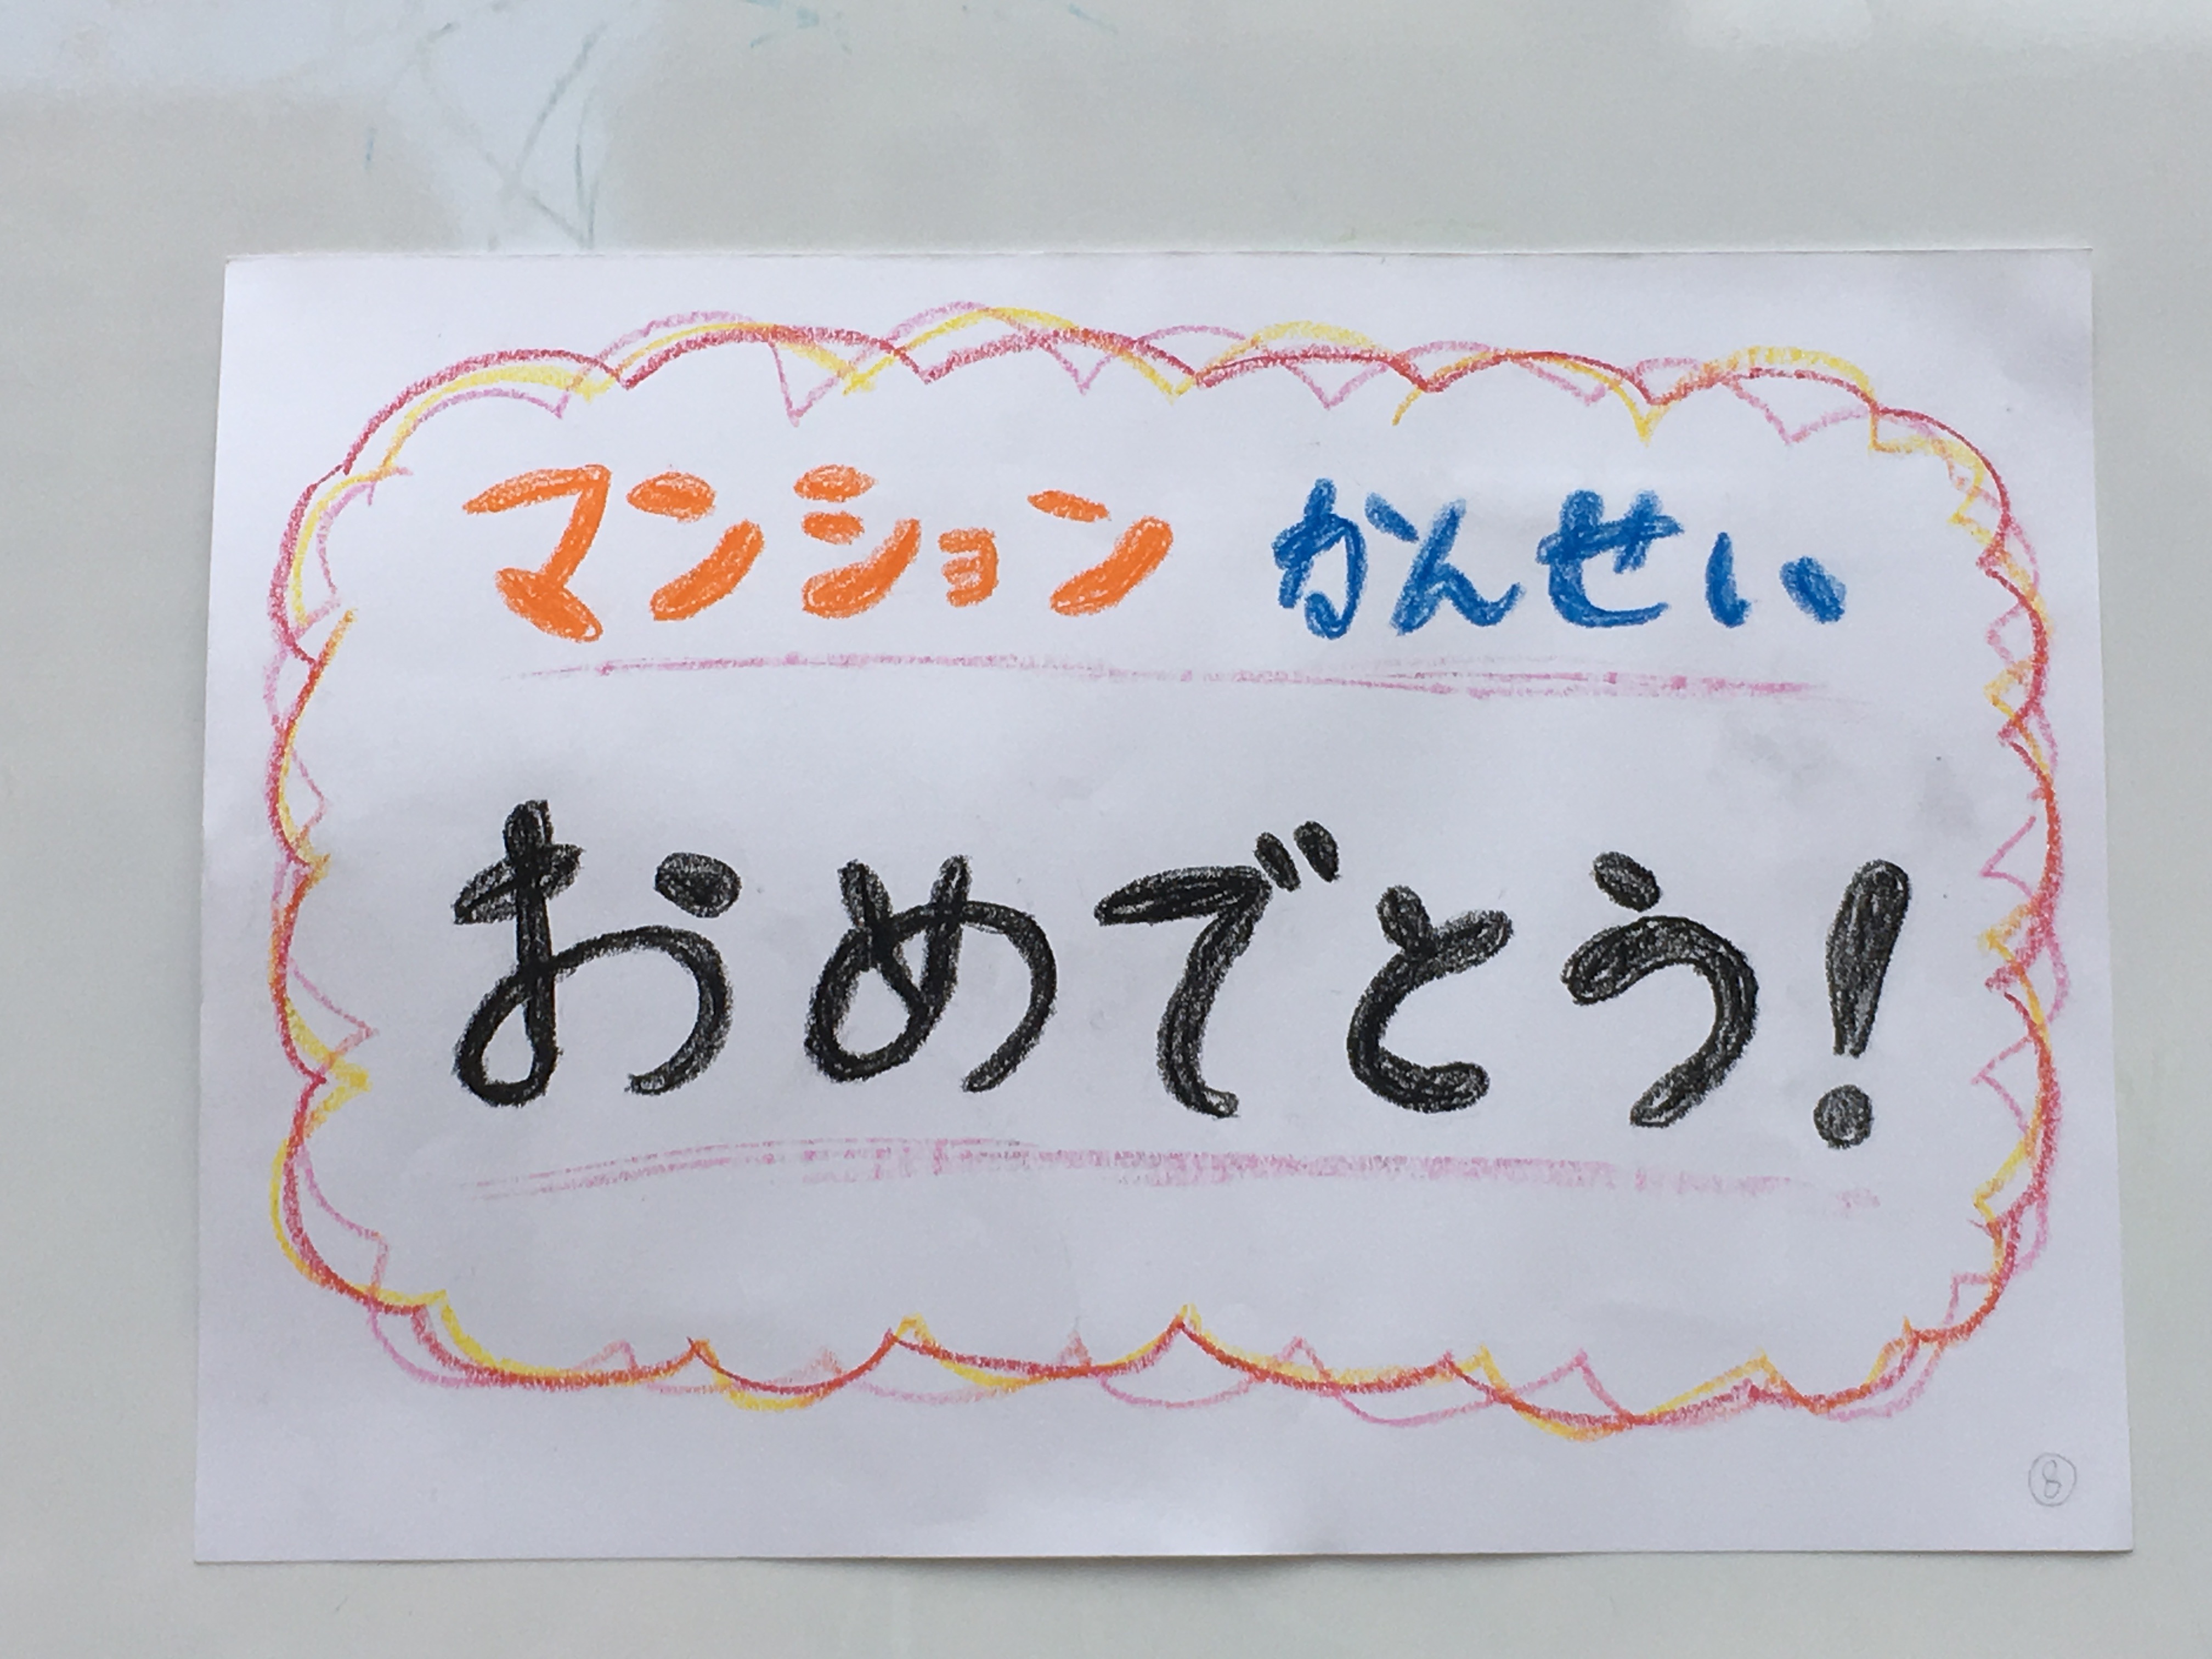 マンション かんせい
おめでとう!
⑧